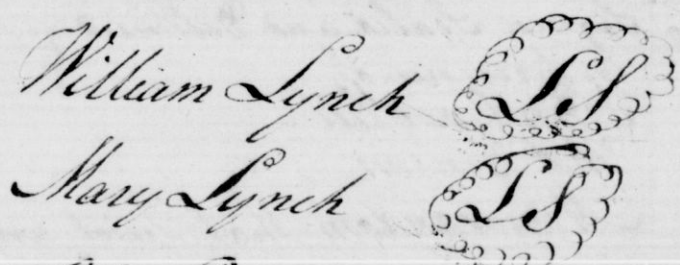 William Lynch LS
Mary Lynch LS